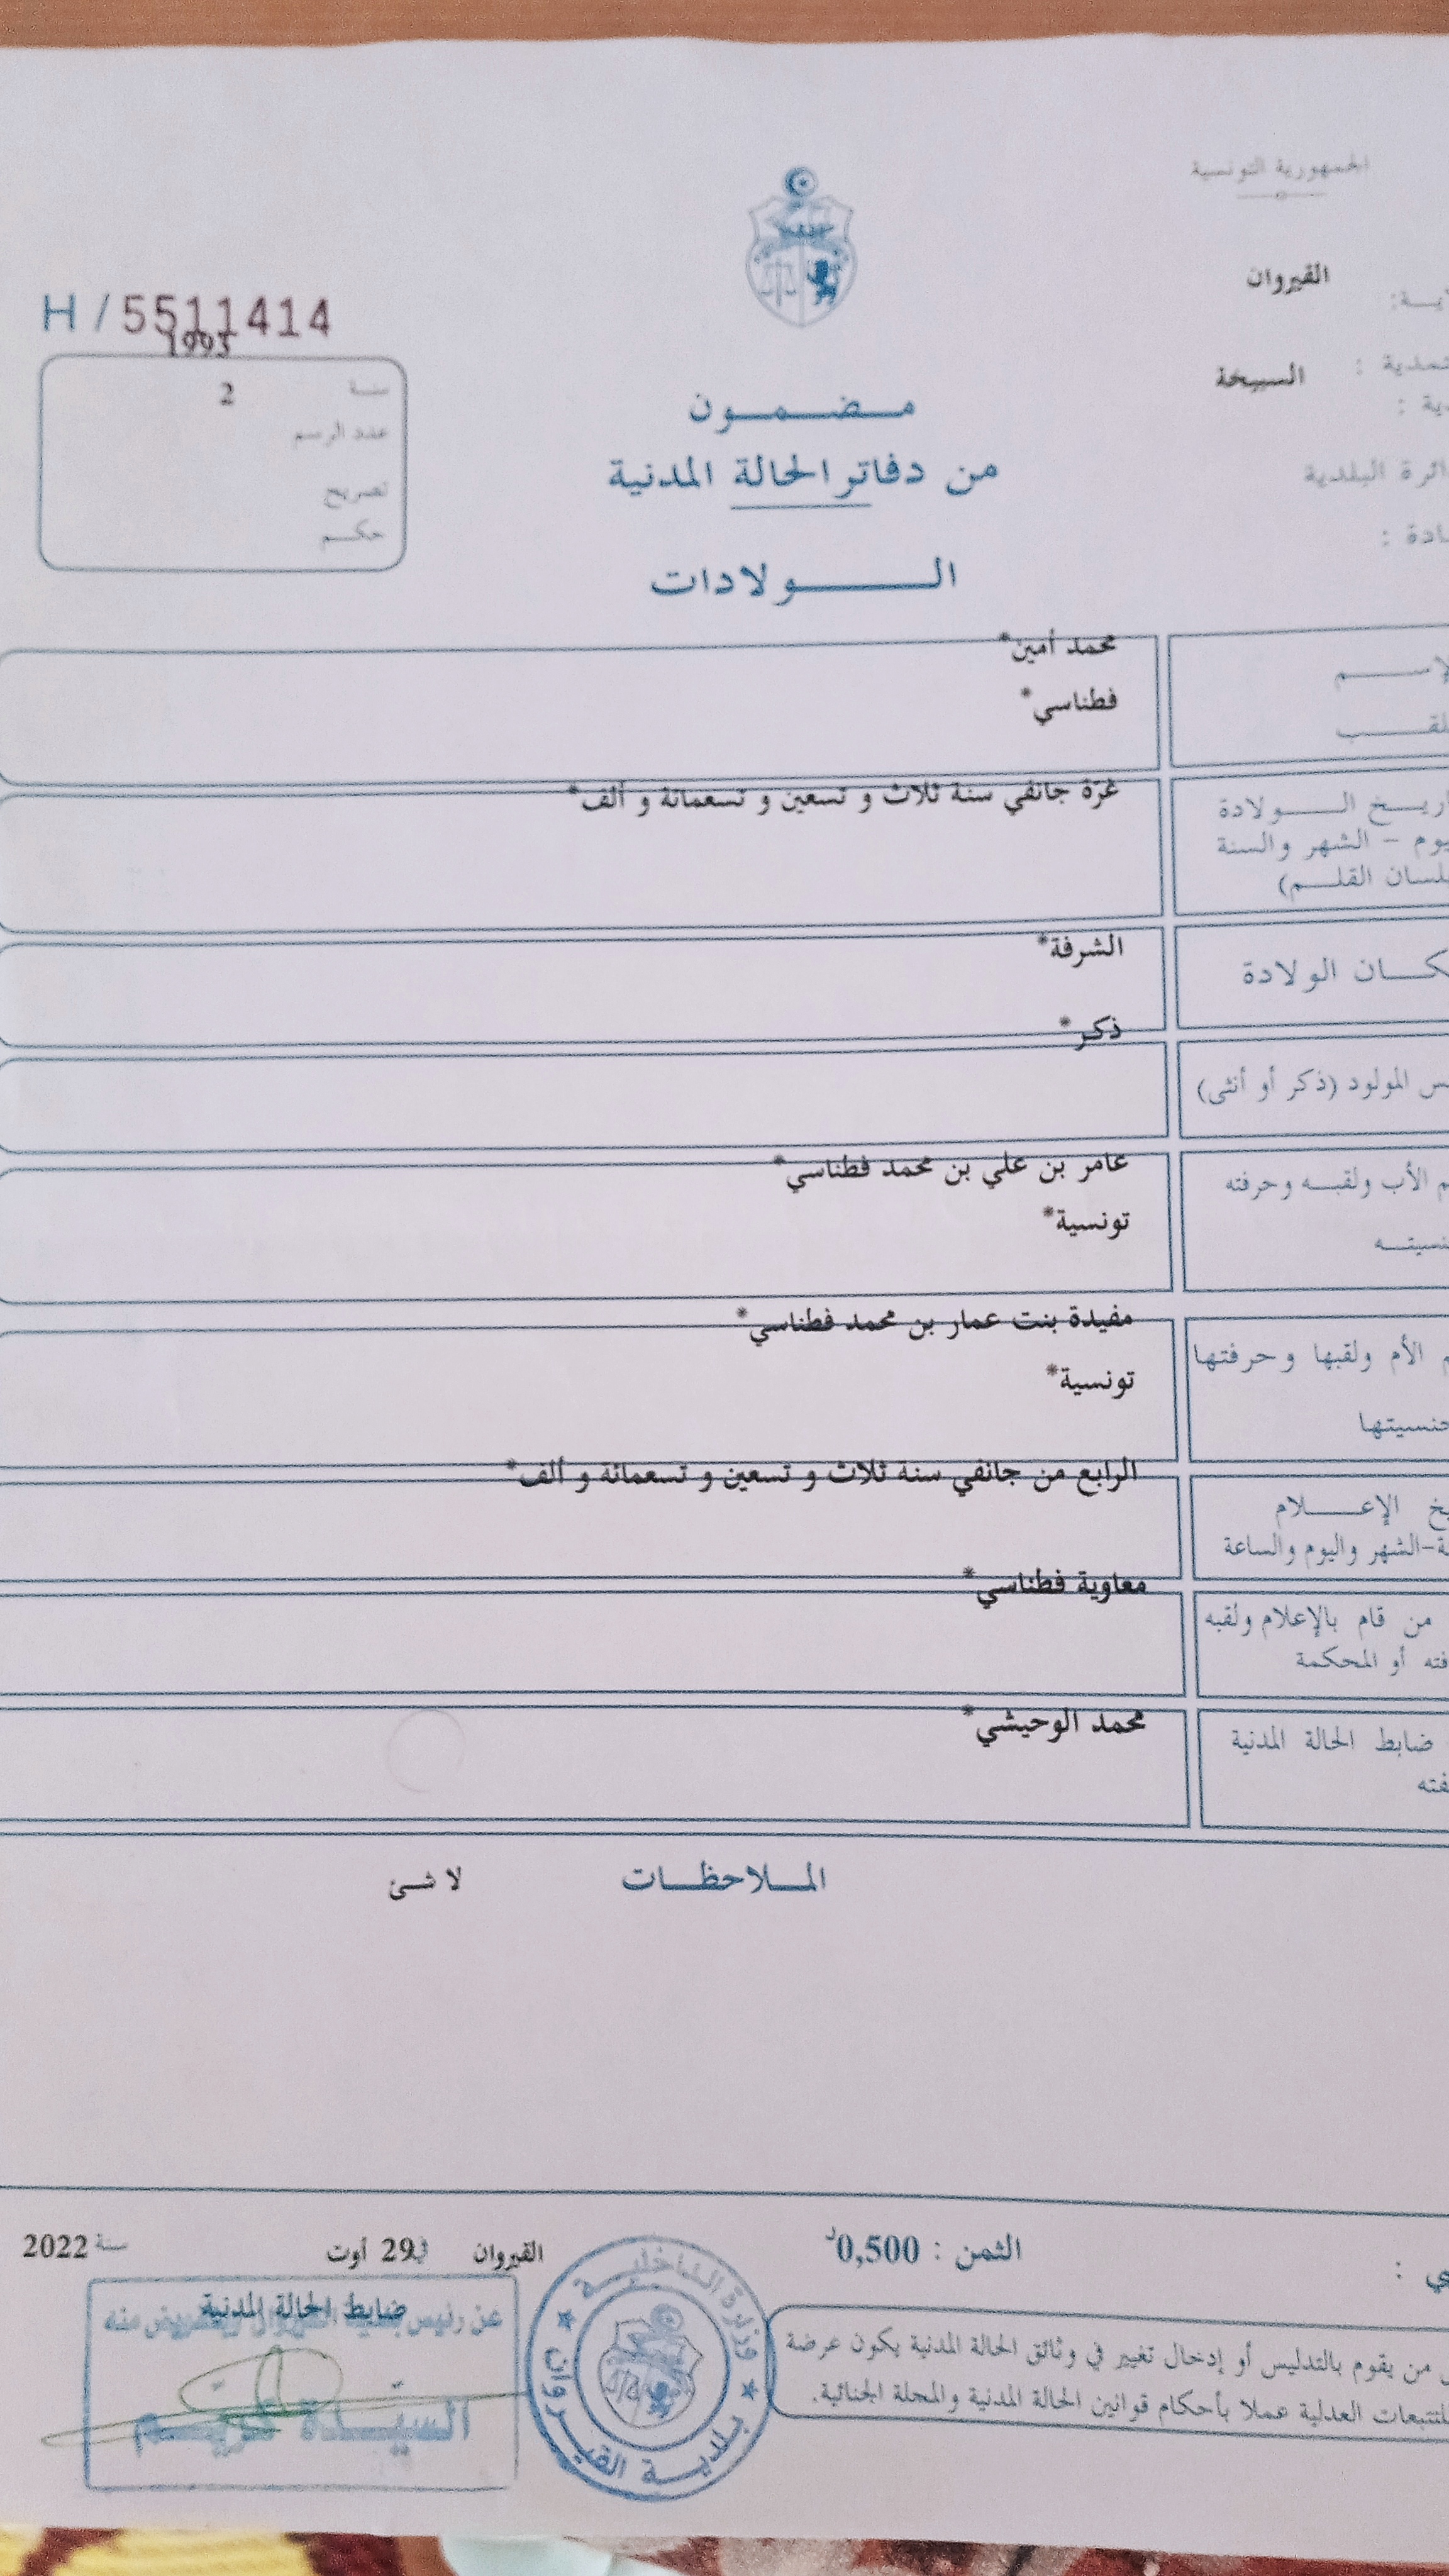 الجمهورية التونسية
القيروان
السبيخة
ائرة البلدية
H / 5511414
1993
سنة 2
عدد الرسم
تصريح
حكم
مضمون
من دفاتر الحالة المدنية
الولادات
محمد أمين*
فطناسي*
اريخ الولادة
يوم - الشهر والسنة
لسان القلم)
غرّة جانفي سنة ثلاث و تسعين و تسعمائة و ألف*
كان الولادة
الشرفة*
ذكر*
س المولود (ذكر أو أنثى)
م الأب ولقبه وحرفته
نسيته
عامر بن علي بن محمد فطناسي*
تونسية*
م الأم ولقبها وحرفتها
جنسيتها
مفيدة بنت عمار بن محمد فطناسي*
تونسية*
يخ الإعلام
ة-الشهر واليوم والساعة
الرابع من جانفي سنة ثلاث و تسعين و تسعمائة و ألف*
من قام بالإعلام ولقبه
فته أو المحكمة
معاوية فطناسي*
ضابط الحالة المدنية
فته
محمد الوحيشي*
الملاحظات
لا شئ
الثمن : 0,500د
القيروان في 29 أوت سنة 2022
ضابط الحالة المدنية
عن رئيس
السيدة
وزارة الداخلية
بلدية القيروان
من يقوم بالتدليس أو إدخال تغيير في وثائق الحالة المدنية يكون عرضة
للتتبعات العدلية عملا بأحكام قوانين الحالة المدنية والمجلة الجنائية.